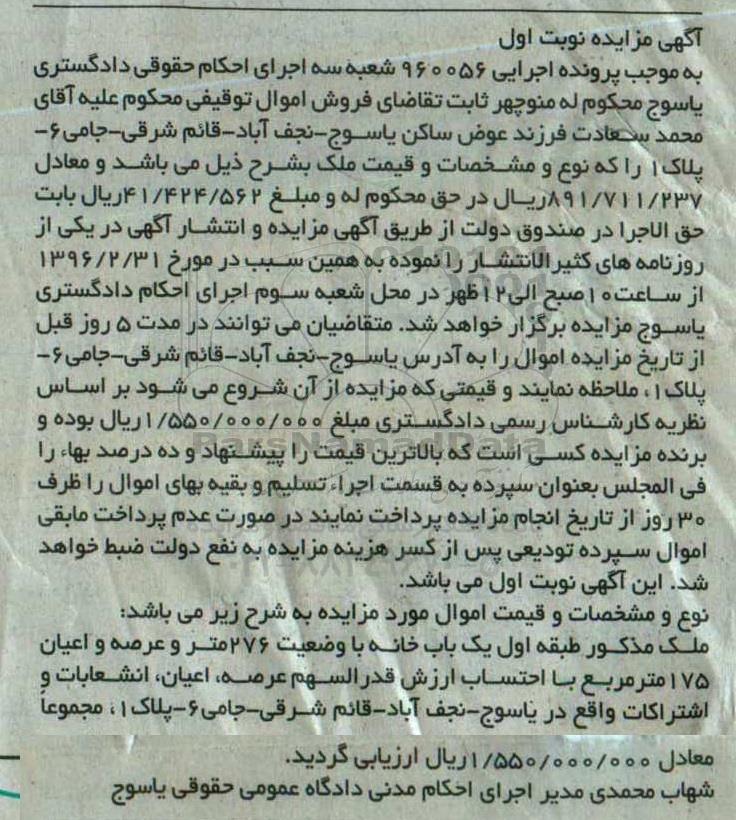 آگهی مزایده نوبت اول
به موجب پرونده اجرایی ۹۶۰۰۵۶ شعبه سه اجرای احکام حقوقی دادگستری
یاسوج محکوم له منوچهر ثابت تقاضای فروش اموال توقیفی محکوم علیه آقای
محمد سعادت فرزند عوض ساکن یاسوج-نجف آباد-قائم شرقی-جامی۶-
پلاک۱ را که نوع و مشخصات و قیمت ملک بشرح ذیل می باشد و معادل
۸۹۱/۷۱۱/۲۳۷ریال در حق محکوم له و مبلغ ۴۱/۴۲۴/۵۶۲ریال بابت
حق الاجرا در صندوق دولت از طریق آگهی مزایده و انتشار آگهی در یکی از
روزنامه های کثیرالانتشار را نموده به همین سبب در مورخ ۱۳۹۶/۲/۳۱
از ساعت۱۰صبح الی۱۲ظهر در محل شعبه سوم اجرای احکام دادگستری
یاسوج مزایده برگزار خواهد شد. متقاضیان می توانند در مدت ۵ روز قبل
از تاریخ مزایده اموال را به آدرس یاسوج-نجف آباد-قائم شرقی-جامی۶-
پلاک۱، ملاحظه نمایند و قیمتی که مزایده از آن شروع می شود بر اساس
نظریه کارشناس رسمی دادگستری مبلغ ۱/۵۵۰/۰۰۰/۰۰۰ریال بوده و
برنده مزایده کسی است که بالاترین قیمت را پیشنهاد و ده درصد بهاء را
فی المجلس بعنوان سپرده به قسمت اجراء تسلیم و بقیه بهای اموال را ظرف
۳۰ روز از تاریخ انجام مزایده پرداخت نمایند در صورت عدم پرداخت مابقی
اموال سپرده تودیعی پس از کسر هزینه مزایده به نفع دولت ضبط خواهد
شد. این آگهی نوبت اول می باشد.
نوع و مشخصات و قیمت اموال مورد مزایده به شرح زیر می باشد:
ملک مذکور طبقه اول یک باب خانه با وضعیت ۲۷۶متر و عرصه و اعیان
۱۷۵مترمربع با احتساب ارزش قدرالسهم عرصه، اعیان، انشعابات و
اشتراکات واقع در یاسوج-نجف آباد-قائم شرقی-جامی۶-پلاک۱، مجموعاً
معادل ۱/۵۵۰/۰۰۰/۰۰۰ریال ارزیابی گردید.
شهاب محمدی مدیر اجرای احکام مدنی دادگاه عمومی حقوقی یاسوج
ParsNamadData